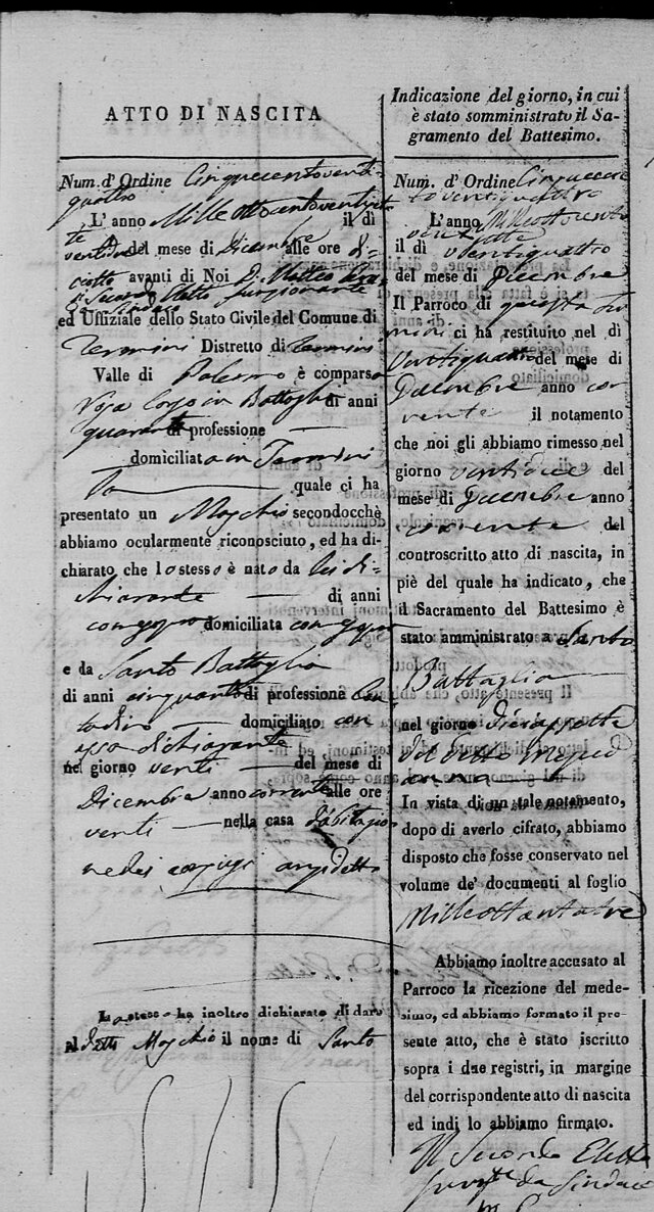 ATTO DI NASCITA
Num. d' Ordine Cinquecentoventi-
quattro
L' anno Mille ottocentoventisette il dì
ventidue del mese di Dicembre alle ore di-
ciotto avanti di Noi D. Matteo
Secondo Eletto funzionante
da Sindaco
ed Uffiziale dello Stato Civile del Comune di
Termini Distretto di Termini
Valle di Palermo è comparsa
in Battaglia di anni
quaranta di professione —
domiciliata in Termini
la quale ci ha
presentato un Maschio secondocchè
abbiamo ocularmente riconosciuto, ed ha di-
chiarato che lo stesso è nato da lei di-
chiarante — di anni
come sopra domiciliata come sopra
e da Santo Battaglia
di anni cinquanta di professione Con-
tadino domiciliato con
essa dichiarante
nel giorno venti — del mese di
Dicembre anno corrente alle ore
venti — nella casa d'abitazio-
ne dei coniugi anzidetti
Lo stesso ha inoltre dichiarato di dare
al detto Maschio il nome di Santo
Indicazione del giorno, in cui
è stato somministrato il Sa-
gramento del Battesimo.
Num. d' Ordine Cinquecen-
toventiquattro
L' anno Milleottocento
ventisette
il dì ventiquattro
del mese di Dicembre
Il Parroco di questa Ter-
mini ci ha restituito nel dì
Ventiquattro del mese di
Dicembre anno cor-
rente il notamento
che noi gli abbiamo rimesso nel
giorno ventidue del
mese di Dicembre anno
corrente del
controscritto atto di nascita, in
piè del quale ha indicato, che
il Sacramento del Battesimo è
stato amministrato a Santo
Battaglia
nel giorno
del detto mese ed
anno
In vista di un tale notamento,
dopo di averlo cifrato, abbiamo
disposto che fosse conservato nel
volume de' documenti al foglio
Milleottantatre
Abbiamo inoltre accusato al
Parroco la ricezione del mede-
simo, ed abbiamo formato il pre-
sente atto, che è stato iscritto
sopra i due registri, in margine
del corrispondente atto di nascita
ed indi lo abbiamo firmato.
Il Secondo Eletto
da Sindaco